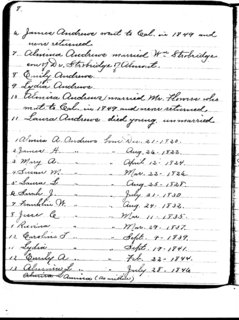 7.
6. James Andrews went to Cal. in 1849 and
never returned.
7. Almina Andrews married Wm Strobridge
son of Dr. Strobridge of Almont.
8. Emily Andrews
9. Lydia Andrews
10. Almira Andrews married Mr. Flowers who
went to Cal. in 1849 and never returned.
11 Laura Andrews died young unmarried
1 A. Andrews born Dec. 21 - 1820.
2 James H. " " Aug. 26 - 1822.
3 Mary A. " " April 12 - 1824.
4 Susan M. " " Mar. 23 - 1826.
5 Laura " " Aug. 25 - 1828.
6 Sarah " " July 31 - 1830.
7 Franklin W. " " Aug. 24 - 1832.
8 Jesse C " " Mar 11 - 1835.
9 " " Mar. 29 - 1837.
10 Caroline " " Sept. 9 - 1839.
11 Lydia " " Sept. 19 - 1841.
12 Emily A " " Feb. 22 - 1844.
13 " " July 28 - 1846